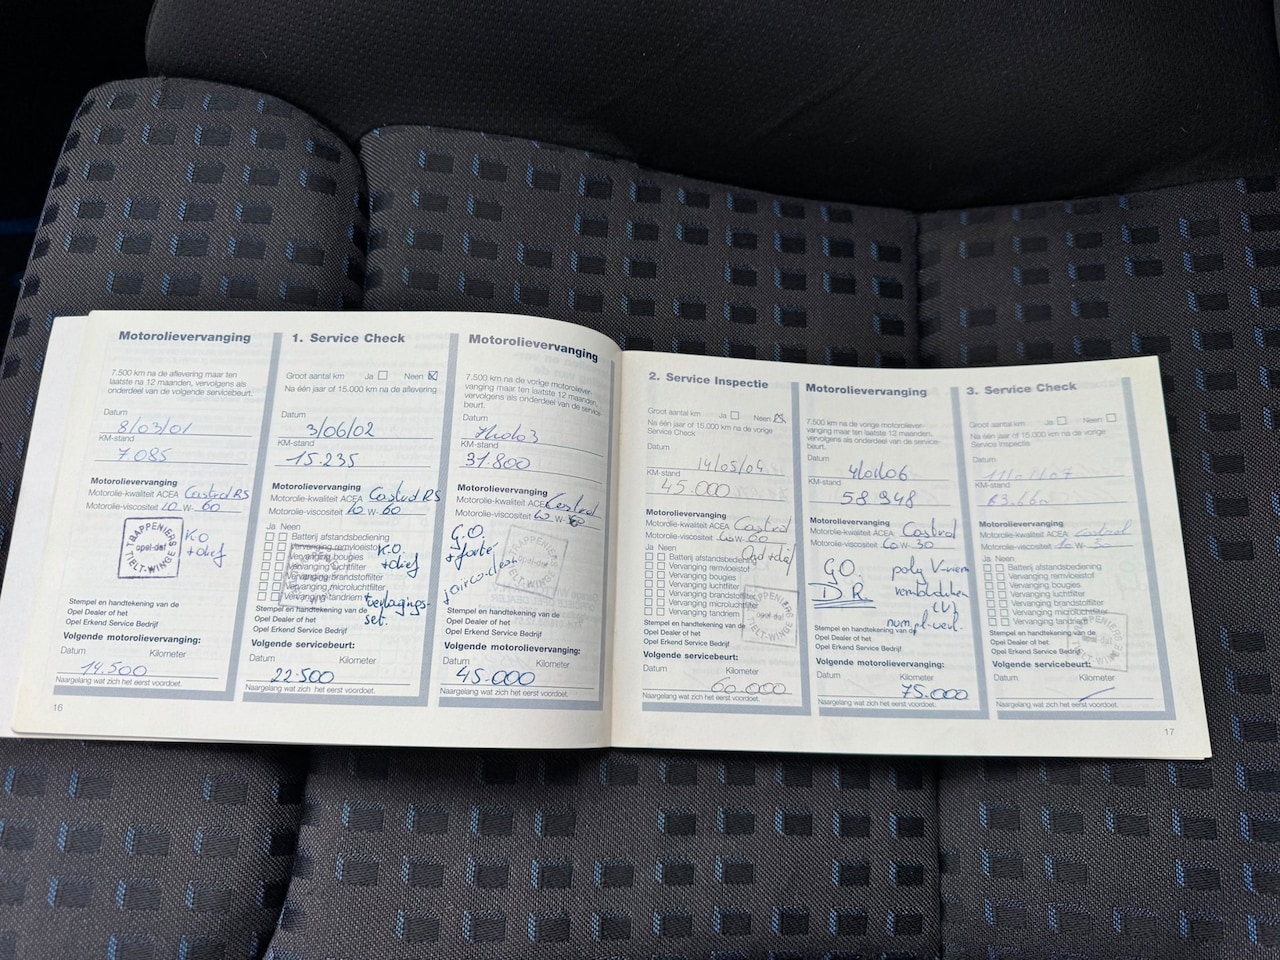 Motorolievervanging
7.500 km na de aflevering maar ten
laatste na 12 maanden, vervolgens als
onderdeel van de volgende servicebeurt.
Datum
8/03/01
KM-stand
7.085
Motorolievervanging
Motorolie-kwaliteit ACEA Castrol RS
Motorolie-viscositeit 10 W- 60
TRAPPENIERS
opel-daf
TELT-WINGE
K.O
+ olief
Stempel en handtekening van de
Opel Dealer of het
Opel Erkend Service Bedrijf
Volgende motorolievervanging:
Datum Kilometer
14.500
Naargelang wat zich het eerst voordoet.
16
1. Service Check
Groot aantal km Ja Neen
Na één jaar of 15.000 km na de aflevering
Datum
3/06/02
KM-stand
15.235
Motorolievervanging
Motorolie-kwaliteit ACEA Castrol RS
Motorolie-viscositeit 10 W- 60
Ja Neen
Batterij afstandsbediening
Vervanging remvloeistof
Vervanging bougies
Vervanging luchtfilter
Vervanging brandstoffilter
Vervanging microluchtfilter
Vervanging tandriem
K.O.
+ olief
+ verlagings-
set.
Stempel en handtekening van de
Opel Dealer of het
Opel Erkend Service Bedrijf
Volgende servicebeurt:
Datum Kilometer
22.500
Naargelang wat zich het eerst voordoet.
Motorolievervanging
7.500 km na de vorige motoroliever-
vanging maar ten laatste 12 maanden,
vervolgens als onderdeel van de service-
beurt.
Datum
KM-stand
31.800
Motorolievervanging
Motorolie-kwaliteit ACEA Castrol
Motorolie-viscositeit 10 W- 60
G.O.
TRAPPENIERS
TELT-WINGE
Stempel en handtekening van de
Opel Dealer of het
Opel Erkend Service Bedrijf
Volgende motorolievervanging:
Datum Kilometer
45.000
Naargelang wat zich het eerst voordoet.
2. Service Inspectie
Groot aantal km Ja Neen
Na één jaar of 15.000 km na de vorige
Service Check
Datum
14/05/04
KM-stand
45.000
Motorolievervanging
Motorolie-kwaliteit ACEA Castrol
Motorolie-viscositeit 10 W- 60
Ja Neen
Batterij afstandsbediening
Vervanging remvloeistof
Vervanging bougies
Vervanging luchtfilter
Vervanging brandstoffilter
Vervanging microluchtfilter
Vervanging tandriem
TRAPPENIERS
opel-daf
TELT-WINGE
Stempel en handtekening van de
Opel Dealer of het
Opel Erkend Service Bedrijf
Volgende servicebeurt:
Datum Kilometer
60.000
Naargelang wat zich het eerst voordoet.
Motorolievervanging
7.500 km na de vorige motoroliever-
vanging maar ten laatste 12 maanden,
vervolgens als onderdeel van de service-
beurt.
Datum
4/01/06
KM-stand
58948
Motorolievervanging
Motorolie-kwaliteit ACEA Castrol
Motorolie-viscositeit 10 W- 30
G.O.
D.R.
poly V-riem
Stempel en handtekening van de
Opel Dealer of het
Opel Erkend Service Bedrijf
Volgende motorolievervanging:
Datum Kilometer
75.000
Naargelang wat zich het eerst voordoet.
3. Service Check
Groot aantal km Ja Neen
Na één jaar of 15.000 km na de vorige
Service Inspectie
Datum
KM-stand
Motorolievervanging
Motorolie-kwaliteit ACEA Castrol
Motorolie-viscositeit 10 W- 30
Ja Neen
Batterij afstandsbediening
Vervanging remvloeistof
Vervanging bougies
Vervanging luchtfilter
Vervanging brandstoffilter
Vervanging microluchtfilter
Vervanging tandriem
TRAPPENIERS
TELT-WINGE
Stempel en handtekening van de
Opel Dealer of het
Opel Erkend Service Bedrijf
Volgende servicebeurt:
Datum Kilometer
Naargelang wat zich het eerst voordoet.
17